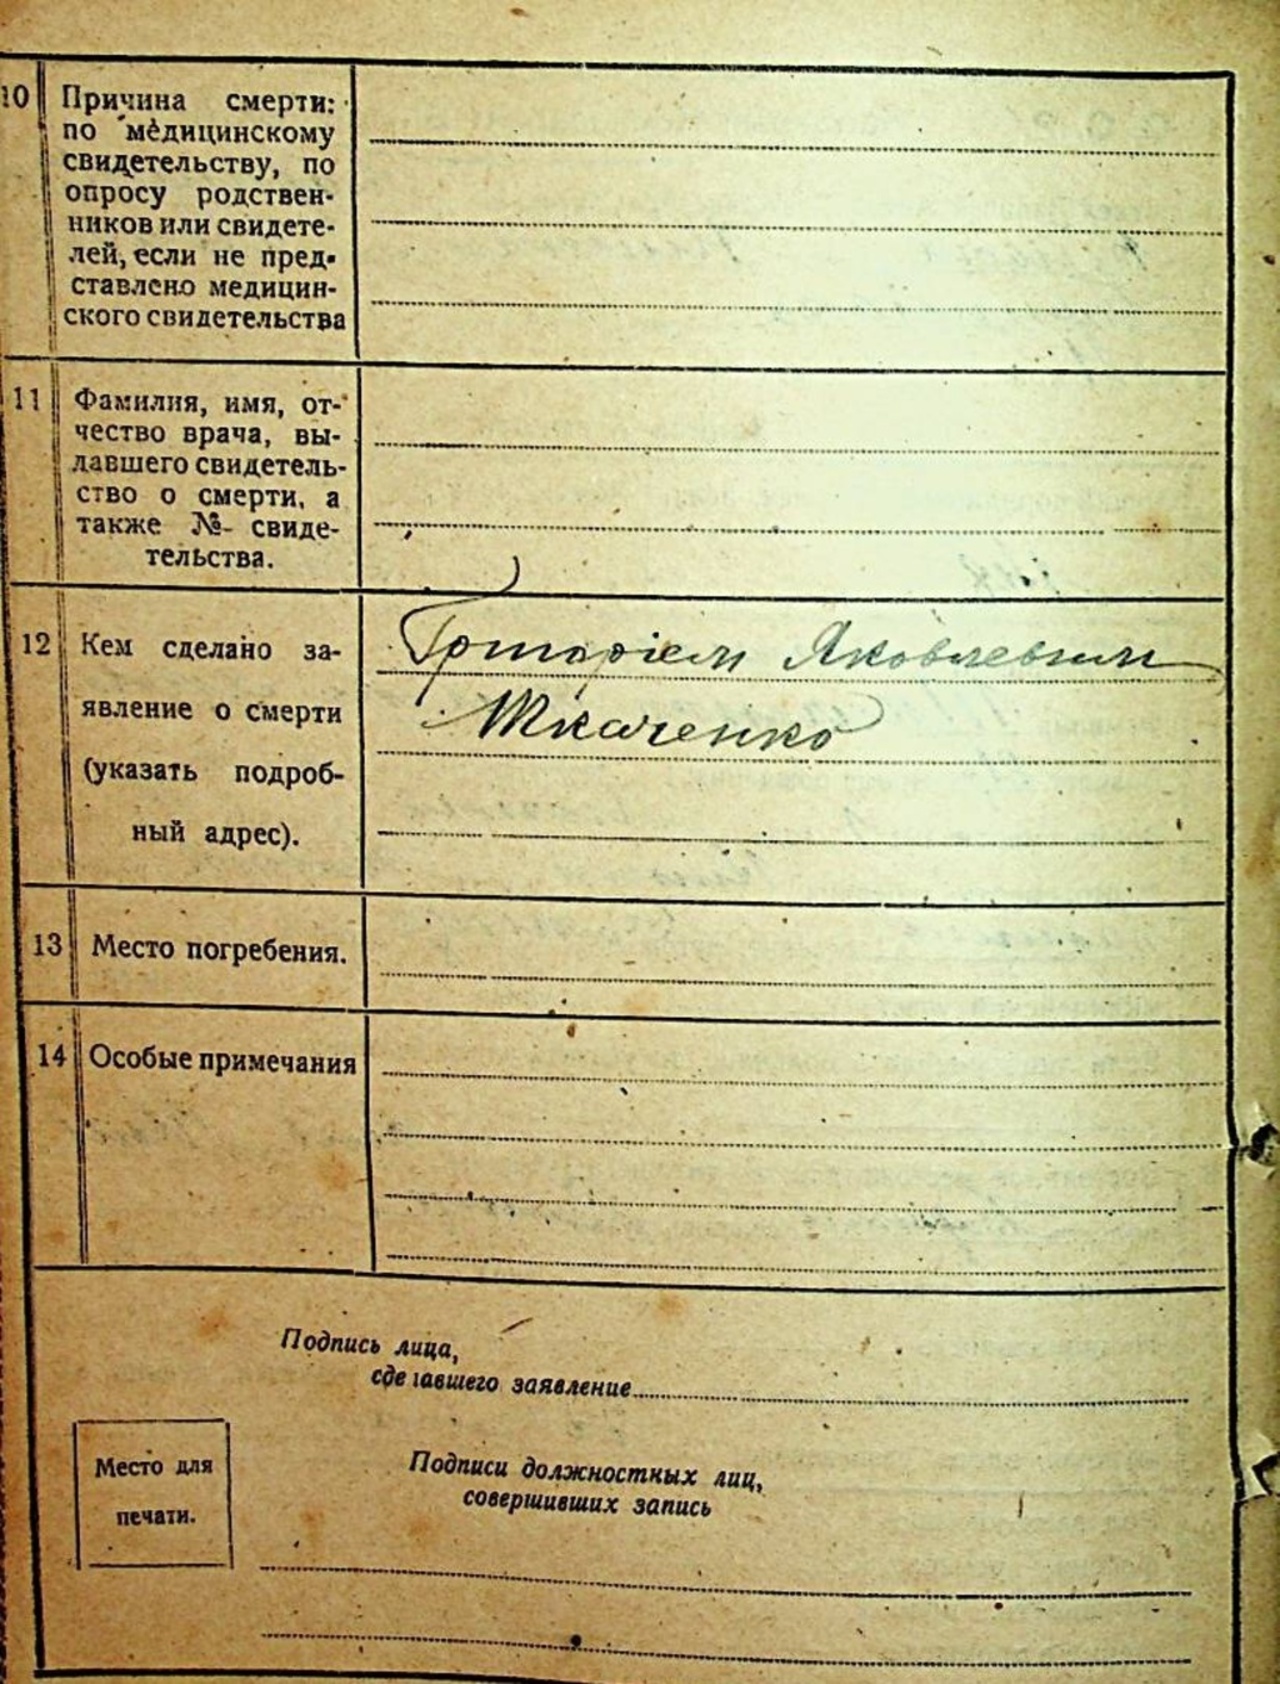 10 Причина смерти:
по медицинскому
свидетельству, по
опросу родствен-
ников или свидете-
лей, если не пред-
ставлено медицин-
ского свидетельства
11 Фамилия, имя, от-
чество врача, вы-
давшего свидетель-
ство о смерти, а
также № свиде-
тельства.
12 Кем сделано за-
явление о смерти
(указать подроб-
ный адрес).
Григоріем Яковлевым
Ткаченко
13 Место погребения.
14 Особые примечания
Подпись лица,
сделавшего заявление
Место для
печати.
Подписи должностных лиц,
совершивших запись